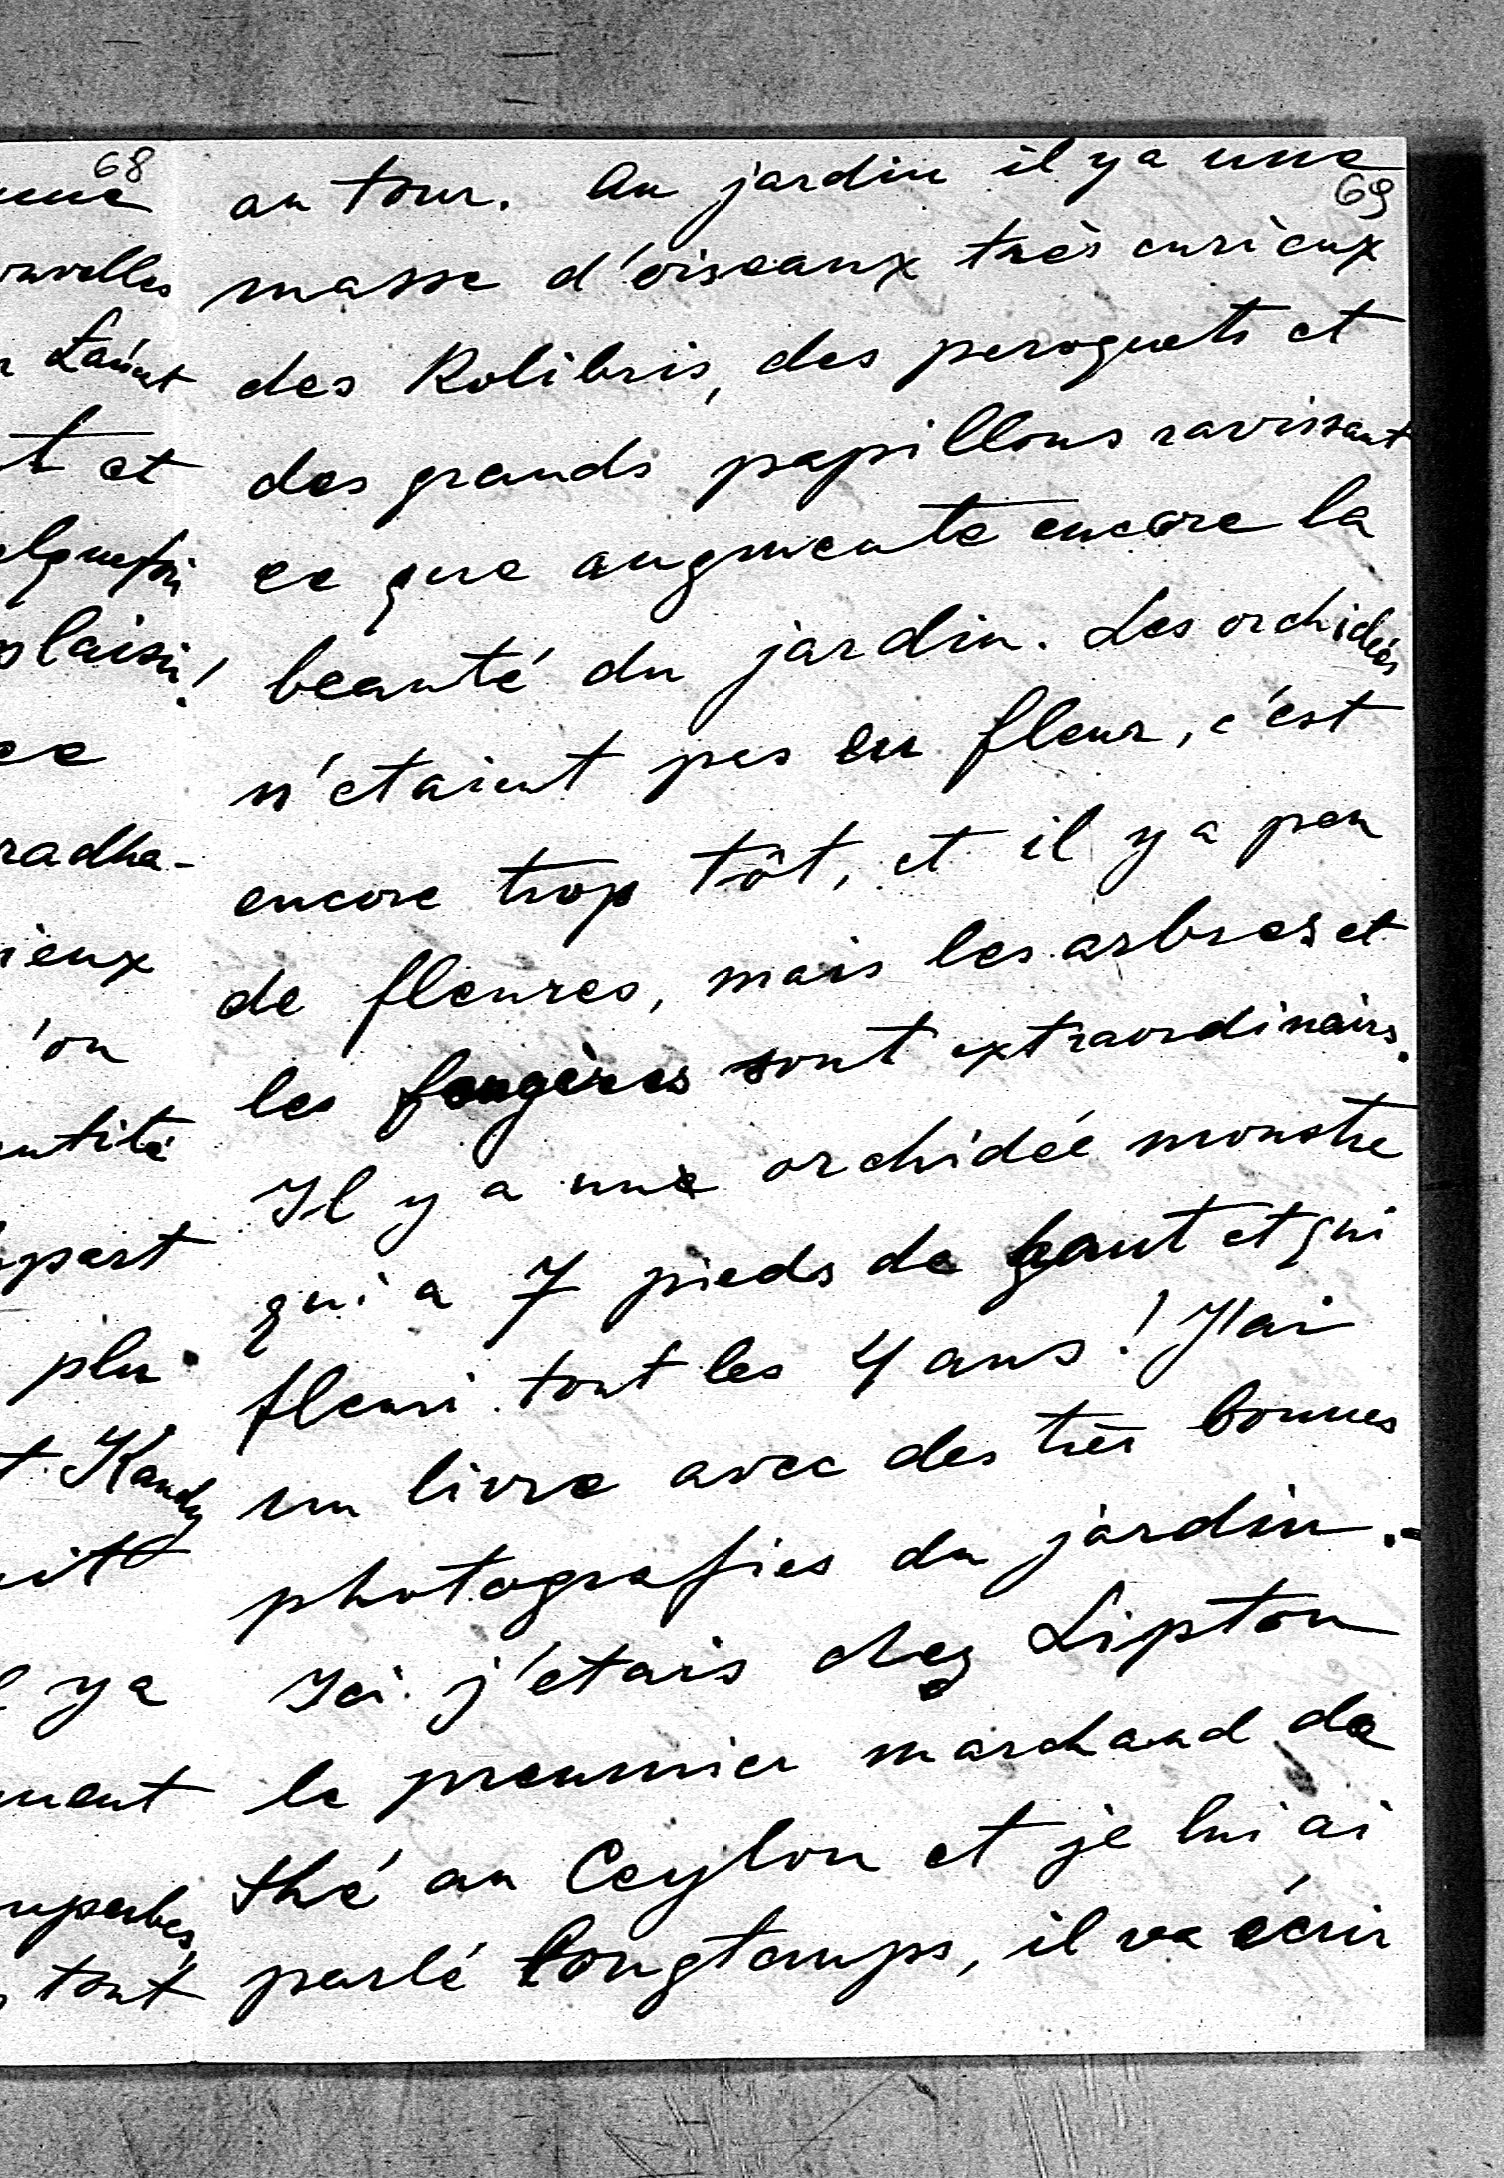 68
une
nouvelles
Laÿat
t et
elquefoi
plaisir!
ce
radha-
ieux
'on
antité
part
plu
t Kandy
uit
l y a
ment
uperbes,
tout
69
au tour. Au jardin il y a une
masse d'oiseaux très curieux
des Kolibris, des peroquets et
des grands papillons ravissant
ce que augmente encore la
beauté du jardin. Les orchidées
n'etaient pas en fleur, c'est
encore trop tôt, et il y a peu
de fleures, mais les arbres et
les fougères sont extraordinairs.
Il y a une orchidée monstre
qui a 7 pieds de haut et qui
fleuri tout les 4 ans! J'ai
un livre avec des très bonnes
photografies du jardin.-
Ici j'etais chez Lipton
le preumier marchand de
thé au Ceylon et je lui ai
parlé longtemps, il va écrir